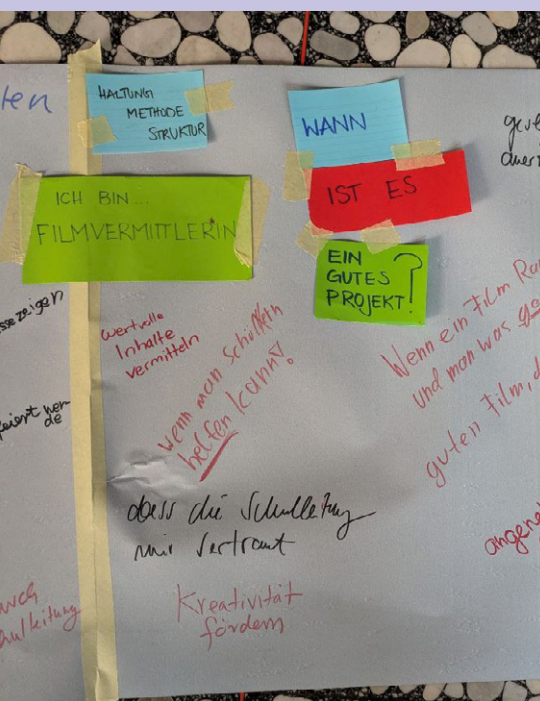 ten
HALTUNG
METHODE
STRUKTUR
ICH BIN...
FILMVERMITTLER*IN
WANN
IST ES
EIN
GUTES
PROJEKT?!
zeigen
wertvolle
Inhalte
vermitteln
wenn man Schülern
helfen kann!
Wenn ein Film
und man was
guten Film, d
dass die Schulleitung
mir vertraut
Kreativität
fördern
feiert wer
de
hulleitung